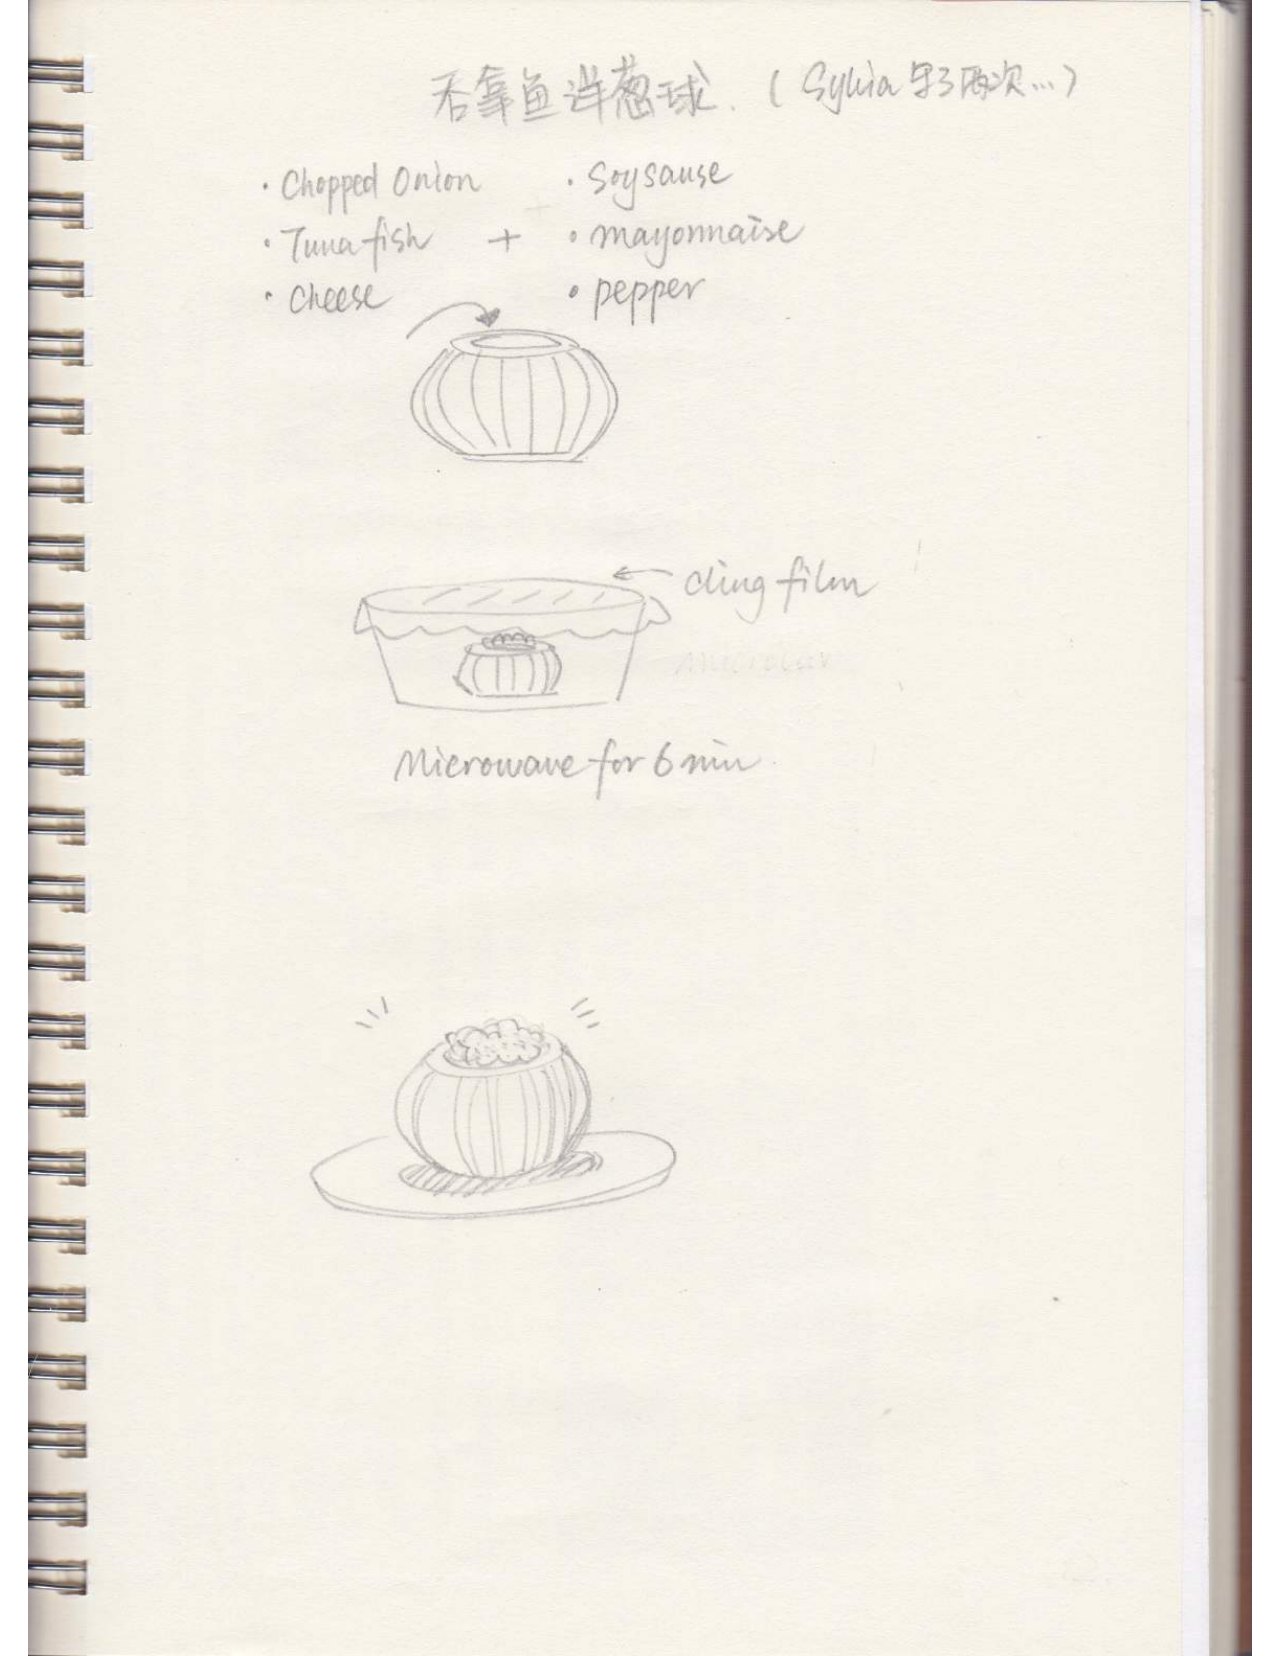 吞拿鱼洋葱球. (Sylvia 了两次...)
· Chopped Onion · Soysause
· Tuna fish + · mayonnaise
· Cheese · pepper
cling film
Microwave for 6 min